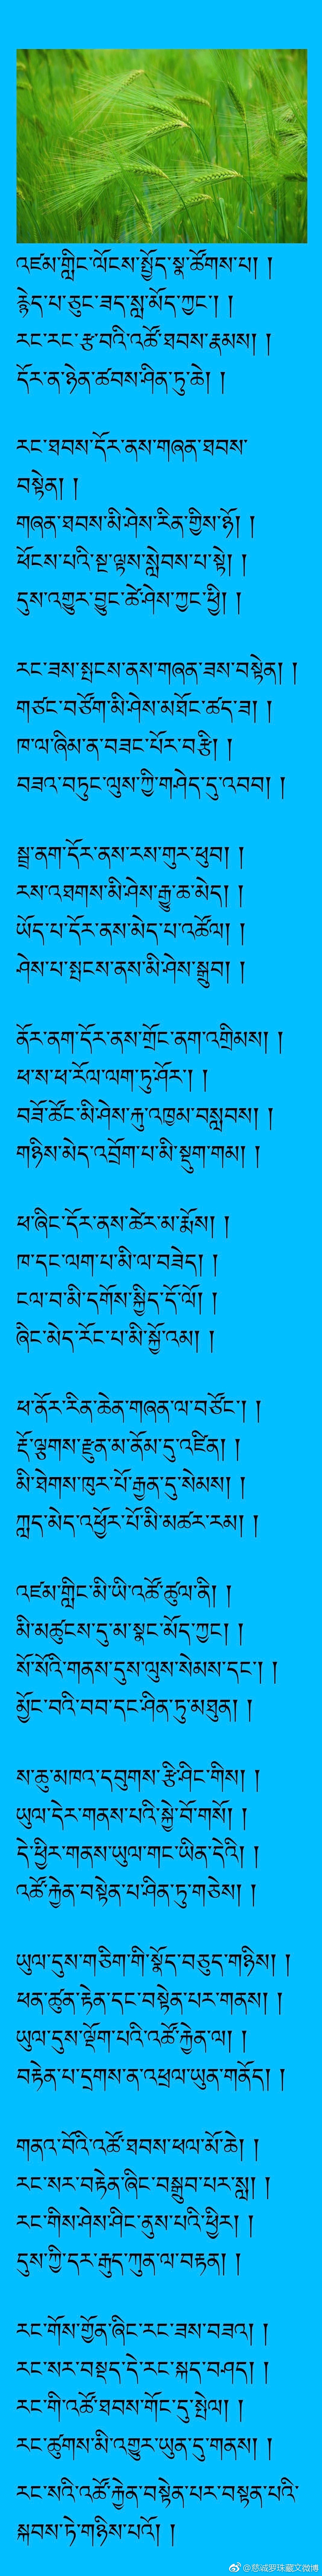 འཛམ་གླིང་ལོངས་སྤྱོད་སྣ་ཚོགས་པ། །
རྙེད་པ་ཅུང་ཟད་སླ་མོད་ཀྱང་། །
རང་རང་རྩ་བའི་འཚོ་ཐབས་རྣམས། །
དོར་ན་ཉེན་ཚབས་ཤིན་ཏུ་ཆེ། །
རང་ཐབས་དོར་ནས་གཞན་ཐབས་
བསྟེན། །
གཞན་ཐབས་མི་ཤེས་རིན་གྱིས་ཉོ། །
ཕོངས་པའི་སྔ་ལྟས་སླེབས་པ་སྟེ། །
དུས་འགྱུར་བྱུང་ཚེ་ཤེས་ཀྱང་ཕྱི། །
རང་ཟས་སྤངས་ནས་གཞན་ཟས་བསྟེན། །
གཙང་བཙོག་མི་ཤེས་མཐོང་ཚད་ཟ། །
ཁ་ལ་ཞིམ་ན་བཟང་པོར་བརྩི། །
བཟའ་བཏུང་ལུས་ཀྱི་གཤེད་དུ་འབབ། །
སྦྲ་ནག་དོར་ནས་རས་གུར་ཕུབ། །
རས་འཐགས་མི་ཤེས་རྒྱུ་ཆ་མེད། །
ཡོད་པ་དོར་ནས་མེད་པ་འཚོལ། །
ཤེས་པ་སྤངས་ནས་མི་ཤེས་སྒྲུབ། །
ནོར་ནག་དོར་ནས་གྲོང་ནག་འགྲིམས། །
ཕ་ས་ཕ་རོལ་ལག་ཏུ་ཤོར་། །
བཟོ་ཚོང་མི་ཤེས་རྐུ་འཁྱམ་བསླབས། །
གཉིས་མེད་འབྲོག་པ་མི་སྡུག་གམ། །
ཕ་ཞིང་དོར་ནས་ཚེར་མ་རྨོས། །
ཁ་དང་ལག་པ་མི་ལ་བཟེད། །
ངལ་བ་མི་དགོས་སྐྱིད་དོ་ལོ། །
ཞིང་མེད་རོང་པ་མི་སྐྱོ་འམ། །
ཕ་ནོར་རིན་ཆེན་གཞན་ལ་བཙོང་། །
རྡོ་ལྕགས་རྫུན་མ་ནོམ་དུ་འཛིན། །
མི་ཐེགས་ཁུར་པོ་རྒྱན་དུ་སེམས། །
ཀླད་མེད་འཕྱོར་པོ་མི་མཚར་རམ། །
འཛམ་གླིང་མི་ཡི་འཚོ་ཚུལ་ནི། །
མི་མཚུངས་དུ་མ་སྣང་མོད་ཀྱང། །
སོ་སོའི་གནས་དུས་ལུས་སེམས་དང་། །
མྱོང་བའི་བབ་དང་ཤིན་ཏུ་མཐུན། །
ས་ཆུ་མཁའ་དབུགས་རྩི་ཤིང་གིས། །
ཡུལ་དེར་གནས་པའི་སྐྱེ་བོ་གསོ། །
དེ་ཕྱིར་གནས་ཡུལ་གང་ཡིན་དེའི། །
འཚོ་རྐྱེན་བསྟེན་པ་ཤིན་ཏུ་གཅེས། །
ཡུལ་དུས་གཅིག་གི་སྣོད་བཅུད་གཉིས། །
ཕན་ཚུན་རྟེན་དང་བསྟེན་པར་གནས། །
ཡུལ་དུས་ལྡོག་པའི་འཚོ་རྐྱེན་ལ། །
བརྟེན་པ་དྲགས་ན་འཕྲལ་ཡུན་གནོད། །
གནའ་བོའི་འཚོ་ཐབས་ཕལ་མོ་ཆེ། །
རང་སར་བརྟེན་ཞིང་བསྒྲུབ་པར་སླ། །
རང་གིས་ཤེས་ཤིང་ནུས་པའི་ཕྱིར། །
དུས་ཀྱི་དར་རྒུད་ཀུན་ལ་བརྟན། །
རང་གོས་གྱོན་ཞིང་རང་ཟས་བཟའ། །
རང་སར་བསྡད་དེ་རང་སྐད་བཤད། །
རང་གི་འཚོ་ཐབས་གོང་དུ་སྤེལ། །
རང་ཚུགས་མི་འགྱུར་ཡུན་དུ་གནས། །
རང་སའི་འཚོ་རྐྱེན་བསྟེན་པར་བསྟན་པའི་
སྐབས་ཏེ་གཉིས་པའོ། །
@慈诚罗珠藏文微博